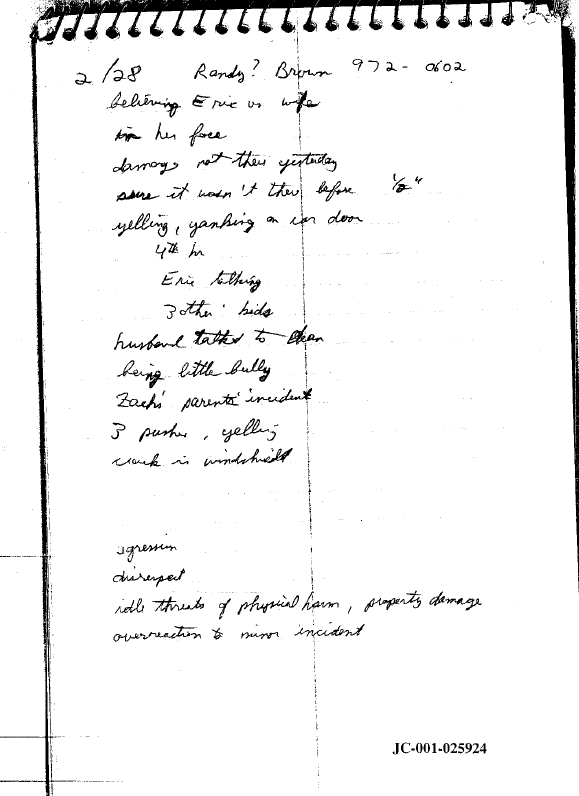 2/28 Randy? Brown 972-0602
believing Eric vs wife
in her face
damage not there yesterday
sure it wasn't there before 1/2"
yelling, yanking on car door
4th hr
Eric talking
3 other kids
husband talked to Dean
being little bully
Zach's parents' incident
3 pusher, yelling
crack in windshield
agression
disrespect
idle threats of physical harm, property damage
overreaction to minor incident
JC-001-025924